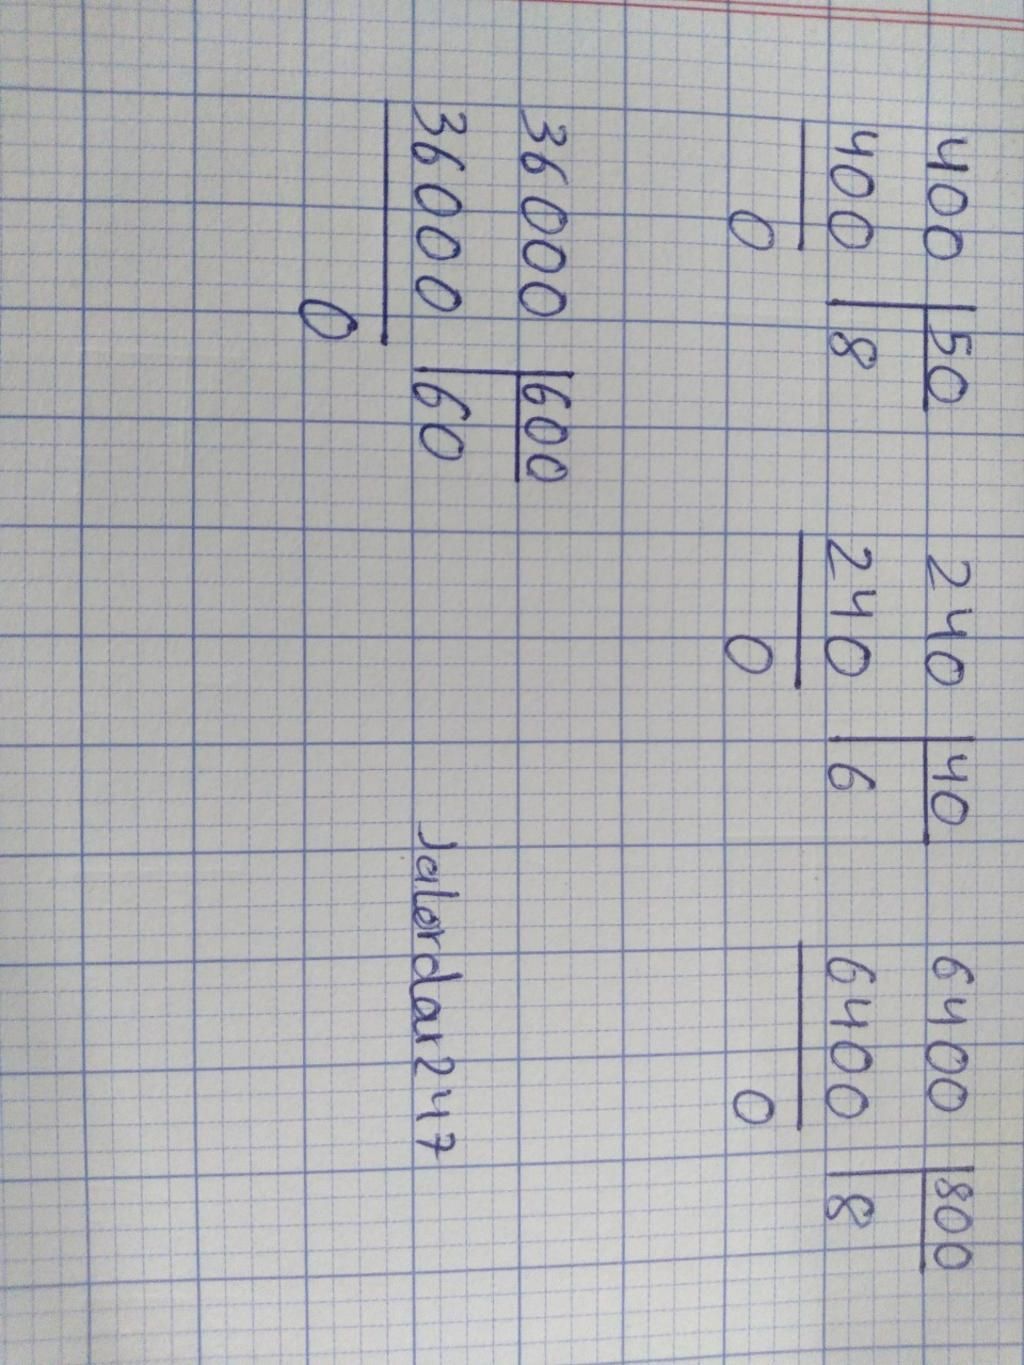 400 | 50 240 | 40 6400 | 800
400 | 8 240 | 6 6400 | 8
0 0 0
36000 | 600
36000 | 60 Jalordar247
0